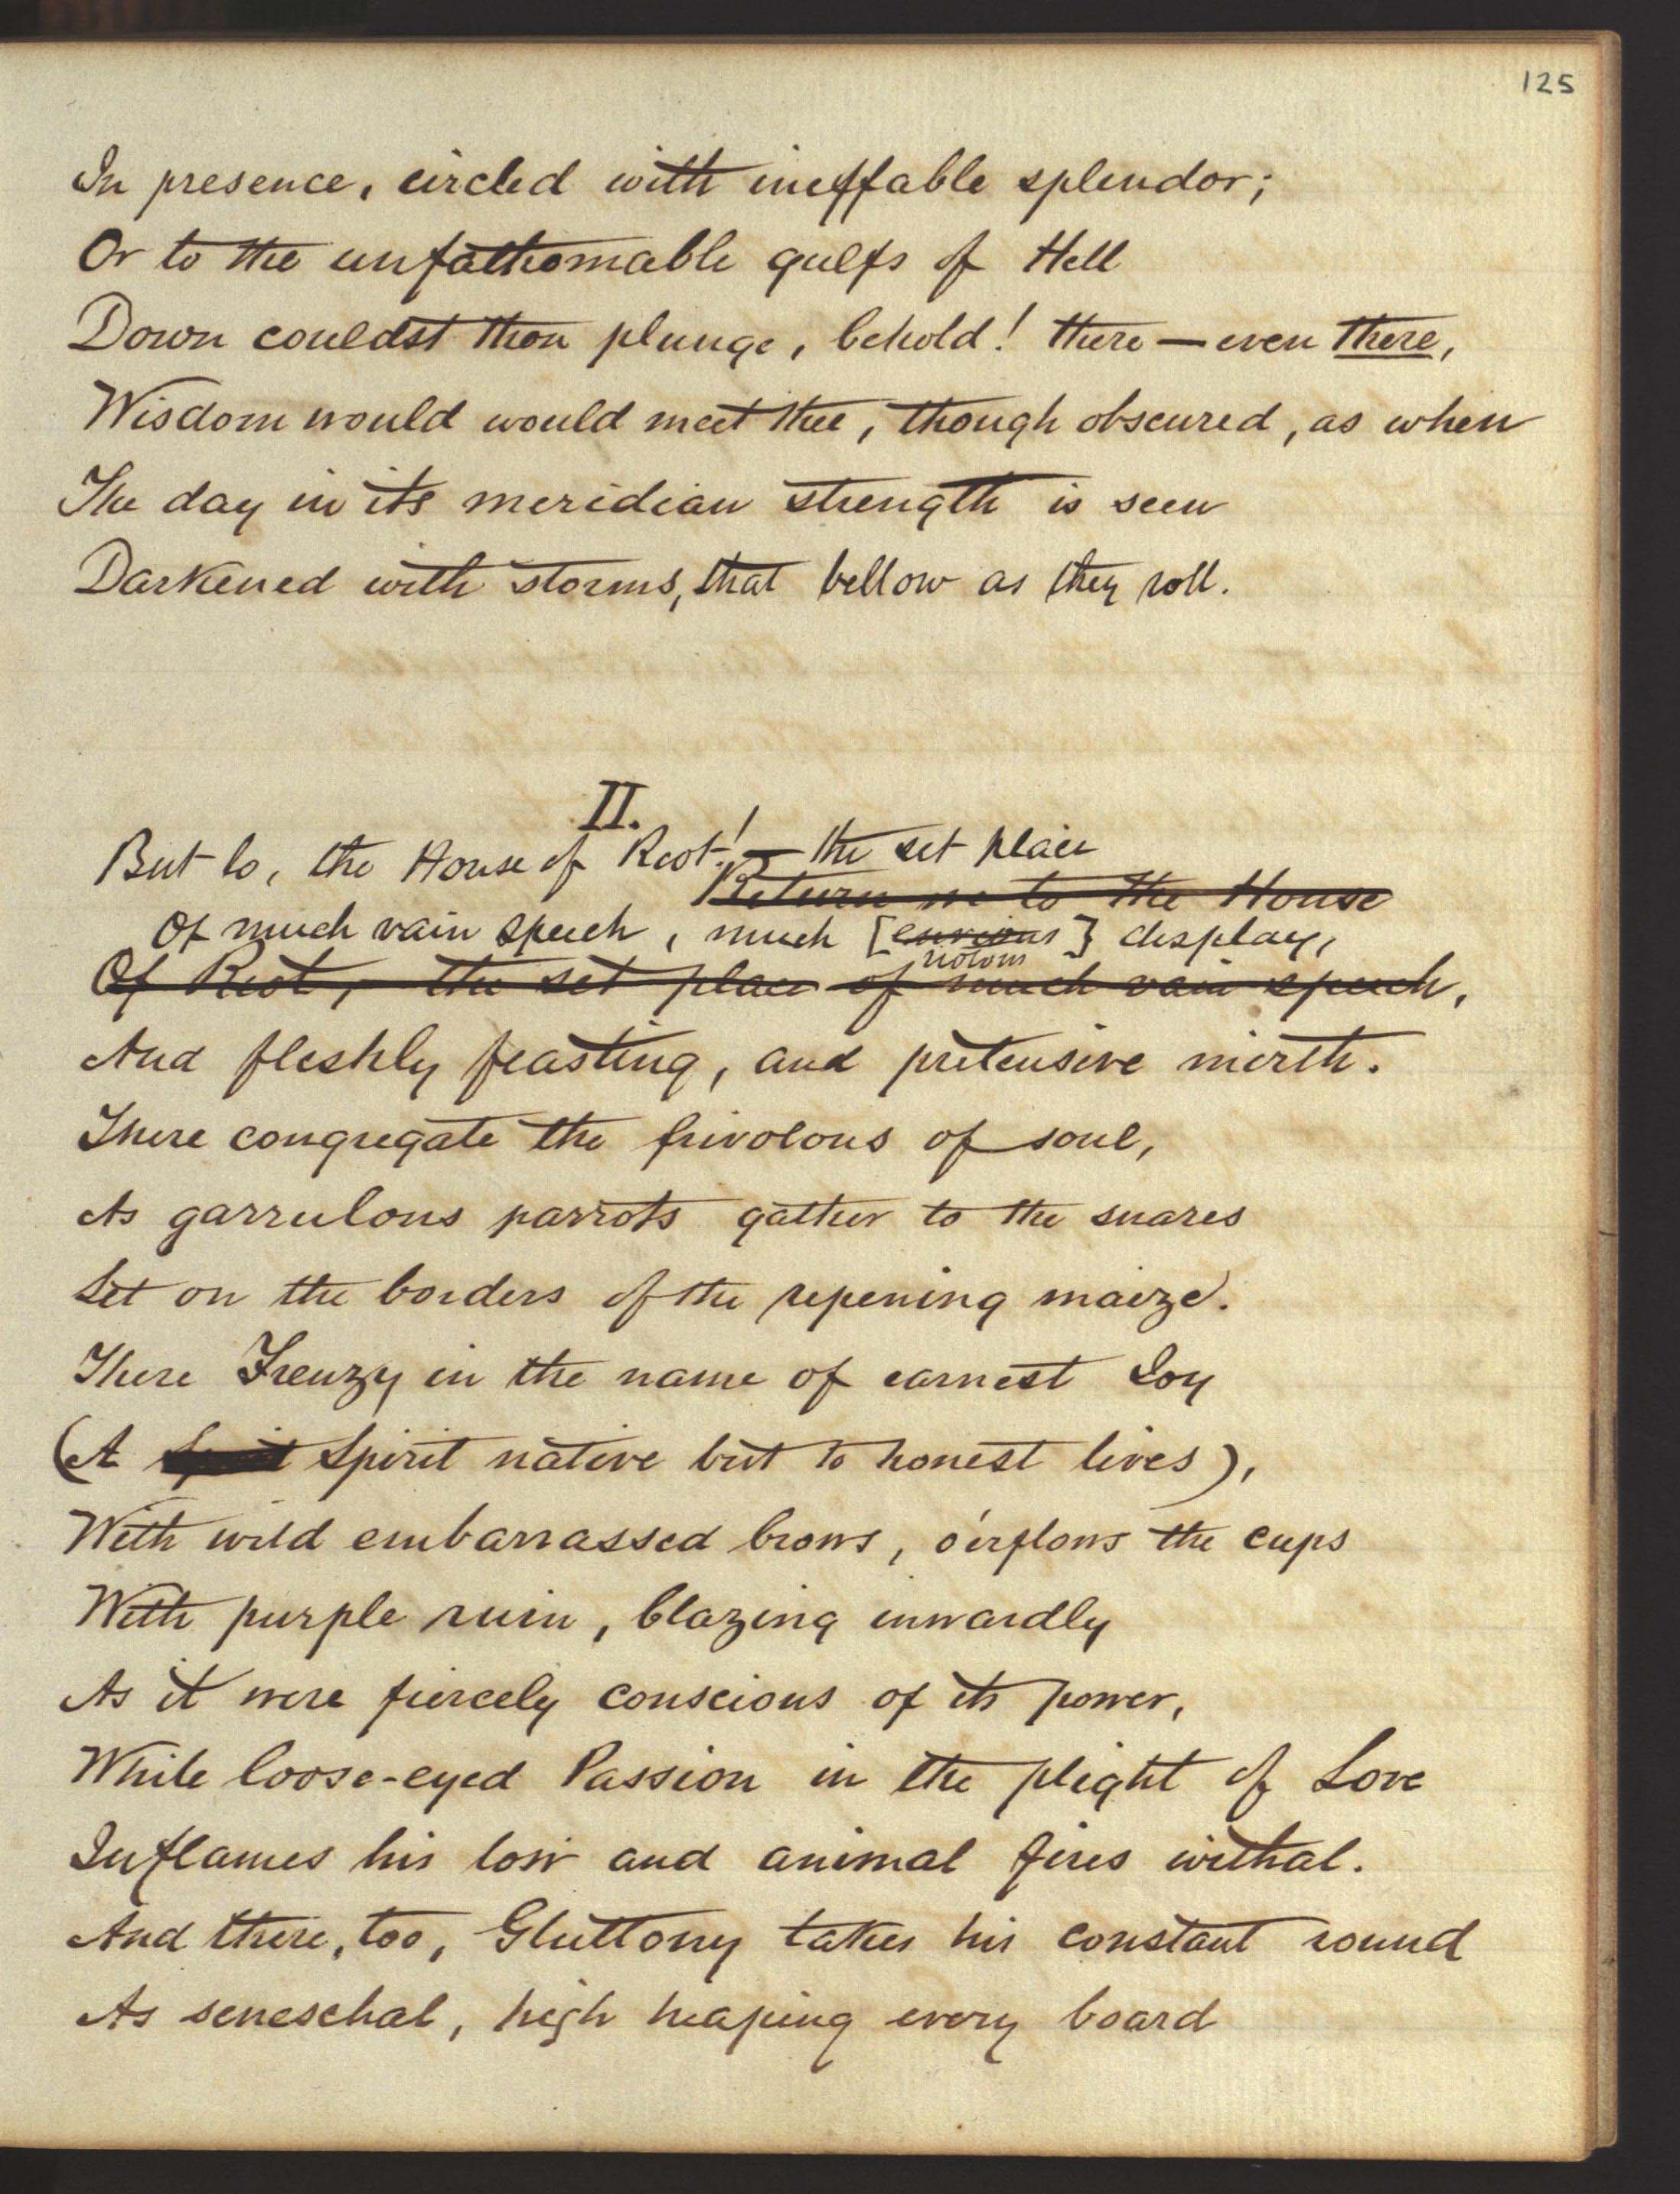 125
In presence, circled with ineffable splendor;
Or to the unfathomable gulfs of Hell
Down couldst thou plunge, behold! there — even there,
Wisdom would would meet thee, though obscured, as when
The day in its meridian strength is seen
Darkened with storms, that bellow as they roll.
II.
But lo, the House of Riot! — the set place
Return we to the House
Of much vain speech, much [envious] display,
riotous
Of Riot, – the set place of much vain speech,
And fleshly feasting, and pretensive mirth.
There congregate the frivolous of soul,
As garrulous parrots gather to the snares
Set on the borders of the ripening maize.
There Frenzy in the name of earnest Joy
(A Spirit Spirit native but to honest lives),
With wild embarrassed brows, o'erflows the cups
With purple ruin, blazing inwardly
As it were fiercely conscious of its power,
While loose-eyed Passion in the plight of Love
Inflames his low and animal fires withal.
And there, too, Gluttony takes his constant round
As seneschal, high heaping every board